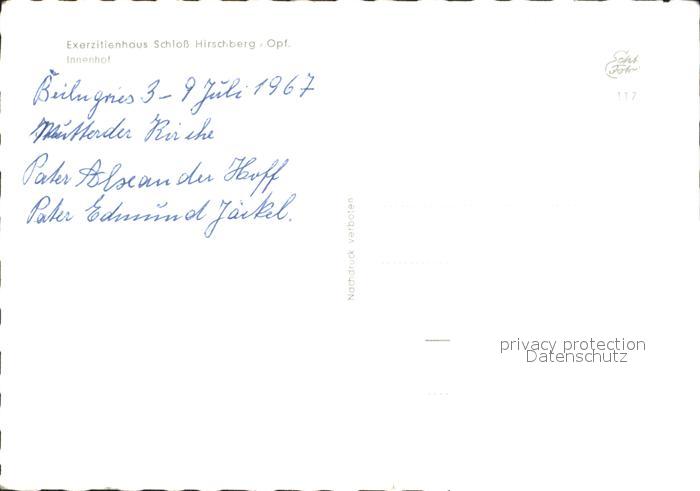 Exerzitienhaus Schloß Hirschberg, Opf.
Innenhof
Echt
Foto
117
Beilngries 3 - 9 Juli 1967
Mutterder Kirche
Pater Alxeander Hoff
Pater Edmund Jäckel.
Nachdruck verboten
privacy protection
Datenschutz